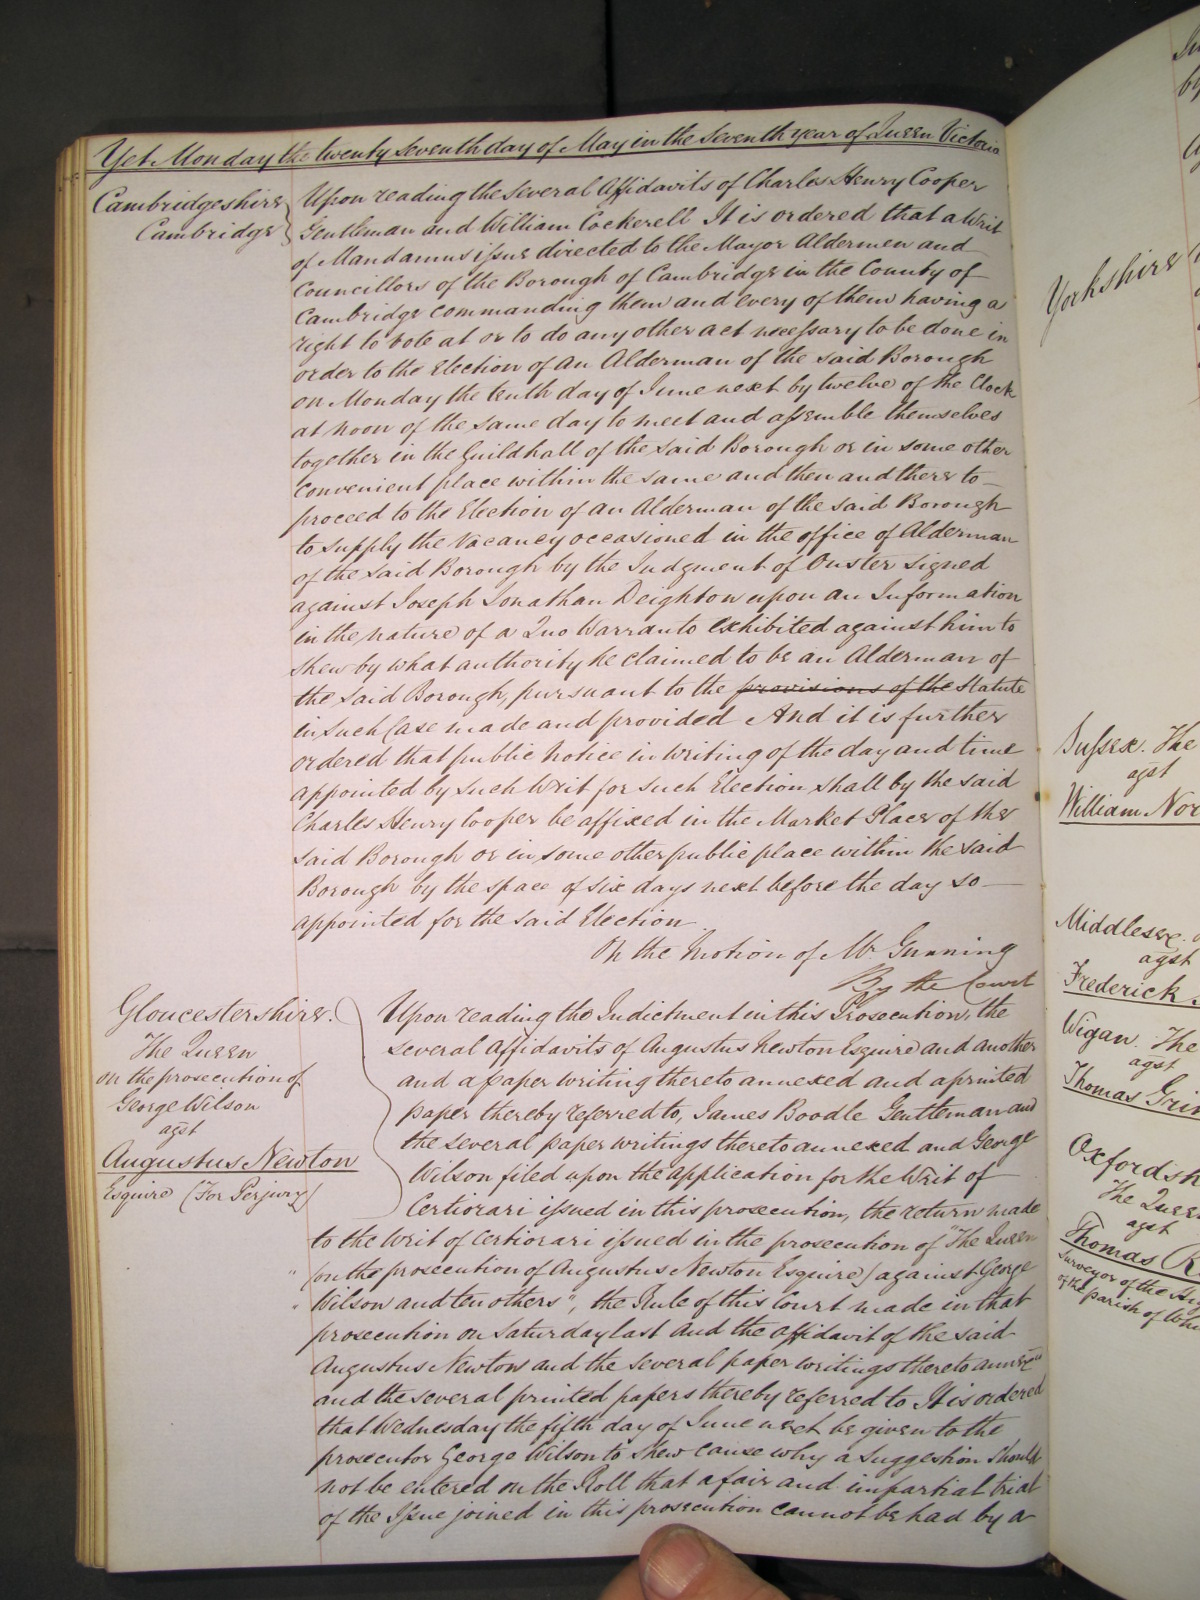 Yet Monday the twenty seventh day of May in the seventh year of Queen Victoria
Cambridgeshire
Cambridge
Upon reading the several Affidavits of Charles Henry Cooper
Gentleman and William Cockerell It is ordered that a Writ
of Mandamus issue directed to the Mayor Aldermen and
Councillors of the Borough of Cambridge in the County of
Cambridge commanding them and every of them having a
right to vote at or to do any other act necessary to be done in
order to the Election of an Alderman of the said Borough
on Monday the tenth day of June next by twelve of the Clock
at noon of the same day to meet and assemble themselves
together in the Guildhall of the said Borough or in some other
convenient place within the same and then and there to
proceed to the Election of an Alderman of the said Borough
to supply the vacancy occasioned in the office of Alderman
of the said Borough by the Judgment of Ouster signed
against Joseph Jonathan Deighton upon an Information
in the nature of a Quo Warranto exhibited against him to
shew by what authority he claimed to be an Alderman of
the said Borough, pursuant to the provisions of the Statute
in such Case made and provided And it is further
ordered that public notice in writing of the day and time
appointed by such Writ for such Election shall by the said
Charles Henry Cooper be affixed in the Market Place of the
said Borough or in some other public place within the said
Borough by the space of six days next before the day so
appointed for the said Election
On the Motion of Mr Gunning
By the Court
Gloucestershire.
The Queen
on the prosecution of
George Wilson
agst
Augustus Newton
Esquire (For Perjury)
Upon reading the Indictment in this Prosecution, the
several affidavits of Augustus Newton Esquire and another
and a paper writing thereto annexed and a printed
paper thereby referred to, James Boodle Gentleman and
the several paper writings thereto annexed and George
Wilson filed upon the application for the Writ of
Certiorari issued in this prosecution, the return made
to the Writ of Certiorari issued in the prosecution of "The Queen
" (on the prosecution of Augustus Newton Esquire) against George
" Wilson and ten others", the Rule of this Court made in that
prosecution on Saturday last and the affidavit of the said
Augustus Newton and the several paper writings thereto annexed
and the several printed papers thereby referred to It is ordered
that Wednesday the fifth day of June next be given to the
prosecutor George Wilson to shew cause why a Suggestion should
not be entered on the Roll that a fair and impartial trial
of the Issue joined in this prosecution cannot be had by a
Yorkshire
Sussex. The
agst
William Nor
Middlesex.
agst
Frederick
Wigan. The
agst
Thomas Grin
Oxfordsh
The Queen
agst
Thomas R
Surveyor of the
of the parish of